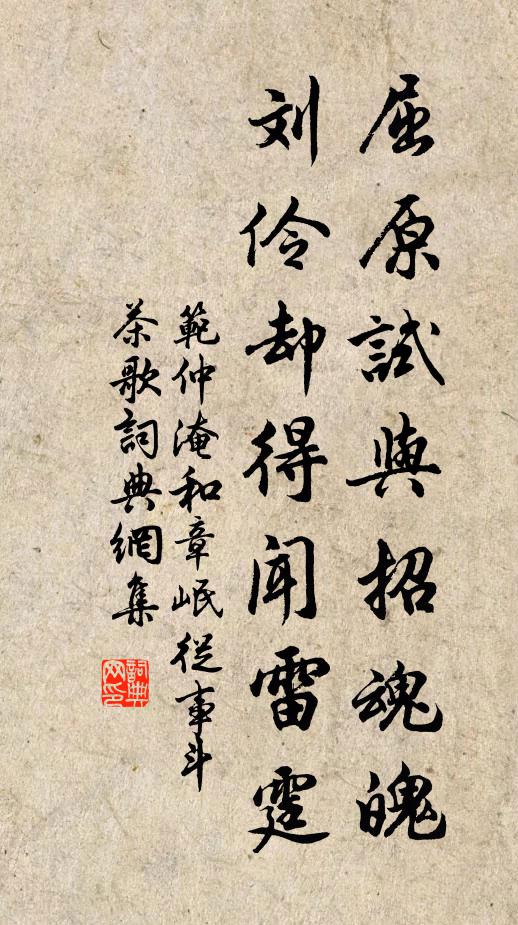 屈原試與招魂魄
刘伶却得聞雷霆
範仲淹和章岷從事斗
茶歌詞典網集
詞典网印